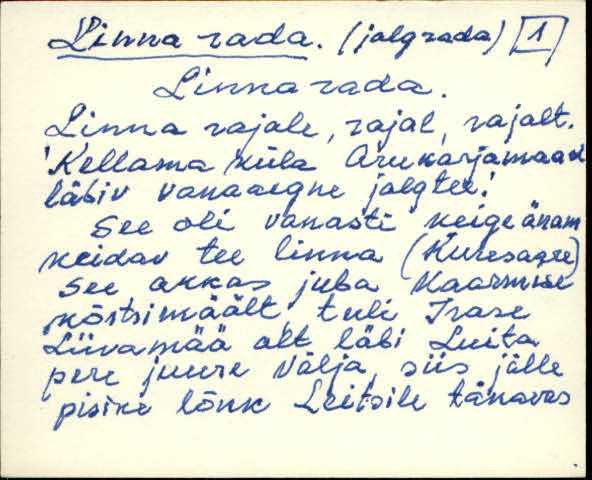 Linna rada. (jalgrada) 1
Linna rada.
Linna rajale, rajal, rajalt.
'Kellama küla Arukarjamaad
läbiv vanaaegne jalgtee.'
See oli vanasti keige änam
keidav tee linna (Kuresaare)
See akkas juba Kaarmise
kõstsimäält, tuli Irase
Liivamää alt läbi Luita
pere juure välja, siis jälle
pisike lõnk Leitsile tänavas